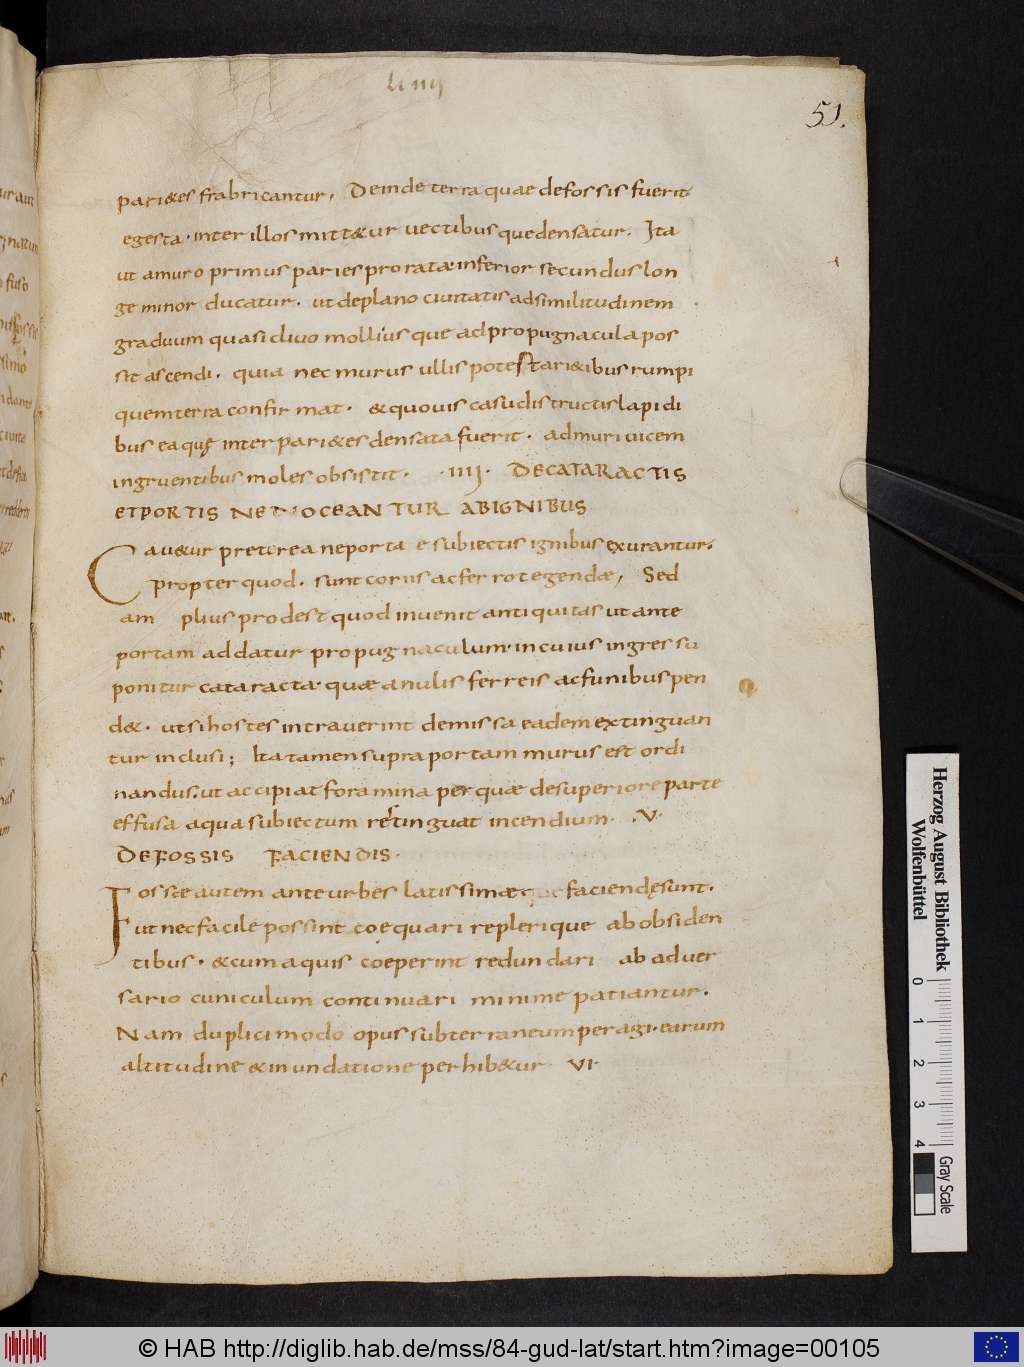 lı ıııȷ
51.
pari&es frabricantur, Deinde terra quae defossis fuerit
egesta · inter illos mitt&ur uectibus quedensatur. Ita
ut amuro primus paries pro rata inferior secundus lon
ge minor ducatur. ut deplano ciuitatis adsimilitudinem
graduum quasi cliuo mollius que ad propugnacula pos
sit ascendi. quia nec murus ullis potest ari&ibus rumpi
quem terra confirmat. & quouis casu distructis lapidi
bus ea quę inter pari&es densata fuerit. ad muri uicem
ingruentibus moles obsistit. ·IIIJ· DE CATARACTIS
ET PORTIS NE NOCEANTUR AB IGNIBUS
Cau&ur preterea ne porta e subiectis ignibus exurantur.
propter quod. sunt coriis ac ferro tegendae, Sed
am plius prodest quod inuenit antiquitas ut ante
portam addatur propugnaculum. in cuius ingressu
ponitur cataracta. quae anulis ferreis ac funibus pen
d&. ut si hostes intrauerint demissa eadem extinguan
tur inclusi; Ita tamen supra portam murus est ordi
nandus. ut accipiat foramina per quae de superiore parte
effusa aqua subiectum restinguat incendium. .V.
DE FOSSIS FACIENDIS.
Fossae autem ante urbes latissimae faciendę sunt.
ut nec facile possint coequari replerique ab obsiden
tibus. & cum aquis coeperint redundari ab aduer
sario cuniculum continuari minime patiantur.
Nam duplici modo opus subterraneum peragi. earum
altitudine & inundatione perhib&ur VI.
Herzog August Bibliothek
Wolfenbüttel
0 1 2 3 4
Gray Scale
© HAB http://diglib.hab.de/mss/84-gud-lat/start.htm?image=00105